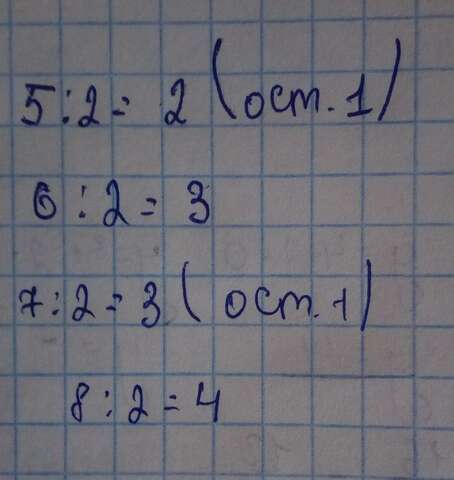 5:2= 2 (ост. 1)
6:2= 3
7:2= 3 (ост. 1)
8:2=4